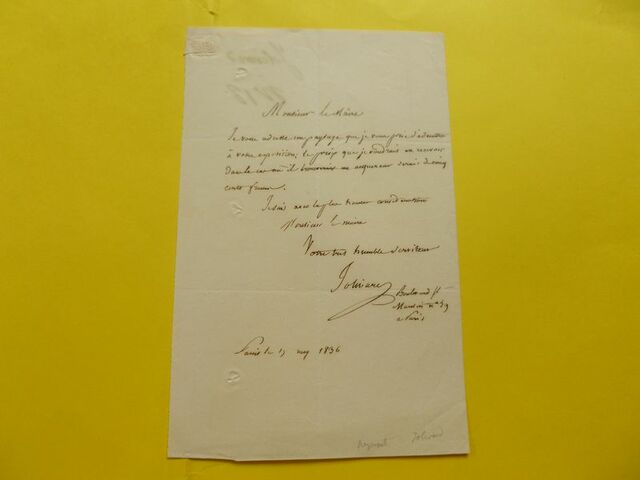 Monsieur le Maire
Je vous adresse un paysage que je vous prie d'admettre
à votre exposition, le prix que je voudrais en recevoir
dans le cas où il trouverait un acquereur serait de cinq
cents francs.
Je suis avec la plus haute considération
Monsieur le maire
Votre très humble serviteur
Jolivard
Boulevard St
Martin n°
a Paris
Paris le 1836
Jolivard